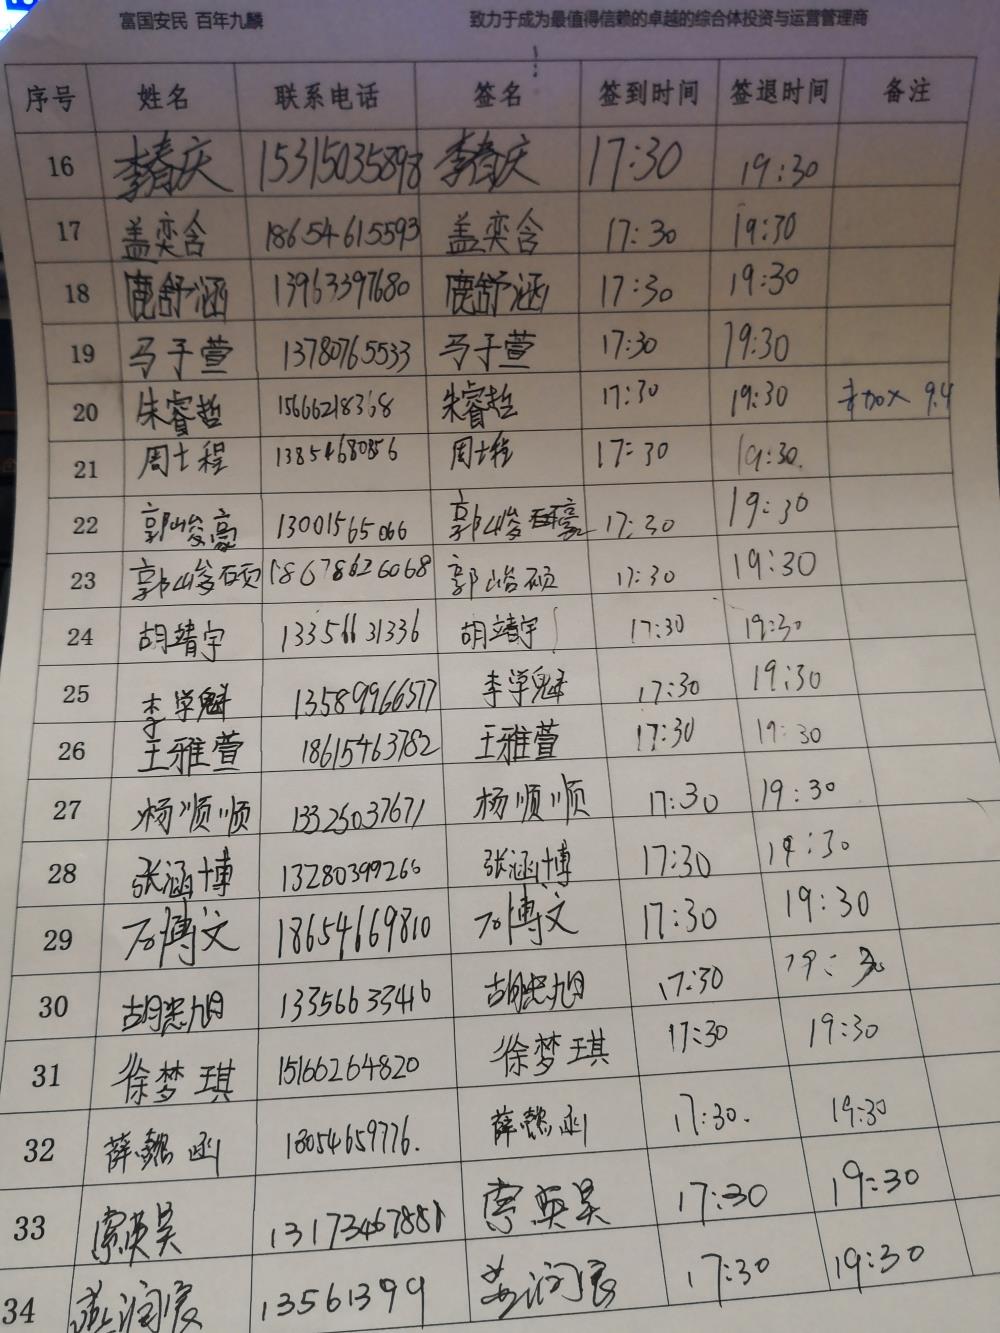 富国安民 百年九麟 致力于成为最值得信赖的卓越的综合体投资与运营管理商
序号 姓名 联系电话 签名 签到时间 签退时间 备注
16 李春庆 15315035898 李春庆 17:30 19:30
17 盖奕含 18654615593 盖奕含 17:30 19:30
18 鹿舒涵 13963397680 鹿舒涵 17:30 19:30
19 马于萱 13780765533 马于萱 17:30 19:30
20 朱睿哲 15666218368 朱睿哲 17:30 19:30 9.4
21 周士程 13854680856 周士程 17:30 19:30
22 郭峻豪 13001565066 郭峻豪 17:30 19:30
23 郭峻硕 18678626068 郭峻硕 17:30 19:30
24 胡靖宇 13356631336 胡靖宇 17:30 19:30
25 李学魁 13589966577 李学魁 17:30 19:30
26 王雅萱 18615463782 王雅萱 17:30 19:30
27 杨顺顺 13325037671 杨顺顺 17:30 19:30
28 张涵博 13280399266 张涵博 17:30 19:30
29 石博文 18654669810 石博文 17:30 19:30
30 胡忠旭 13356633416 胡忠旭 17:30 19:30
31 徐梦琪 15166264820 徐梦琪 17:30 19:30
32 薛懿函 18054659776. 薛懿函 17:30. 19:30
33 英昊 13173467881 英昊 17:30 19:30
34 13561399 17:30 19:30